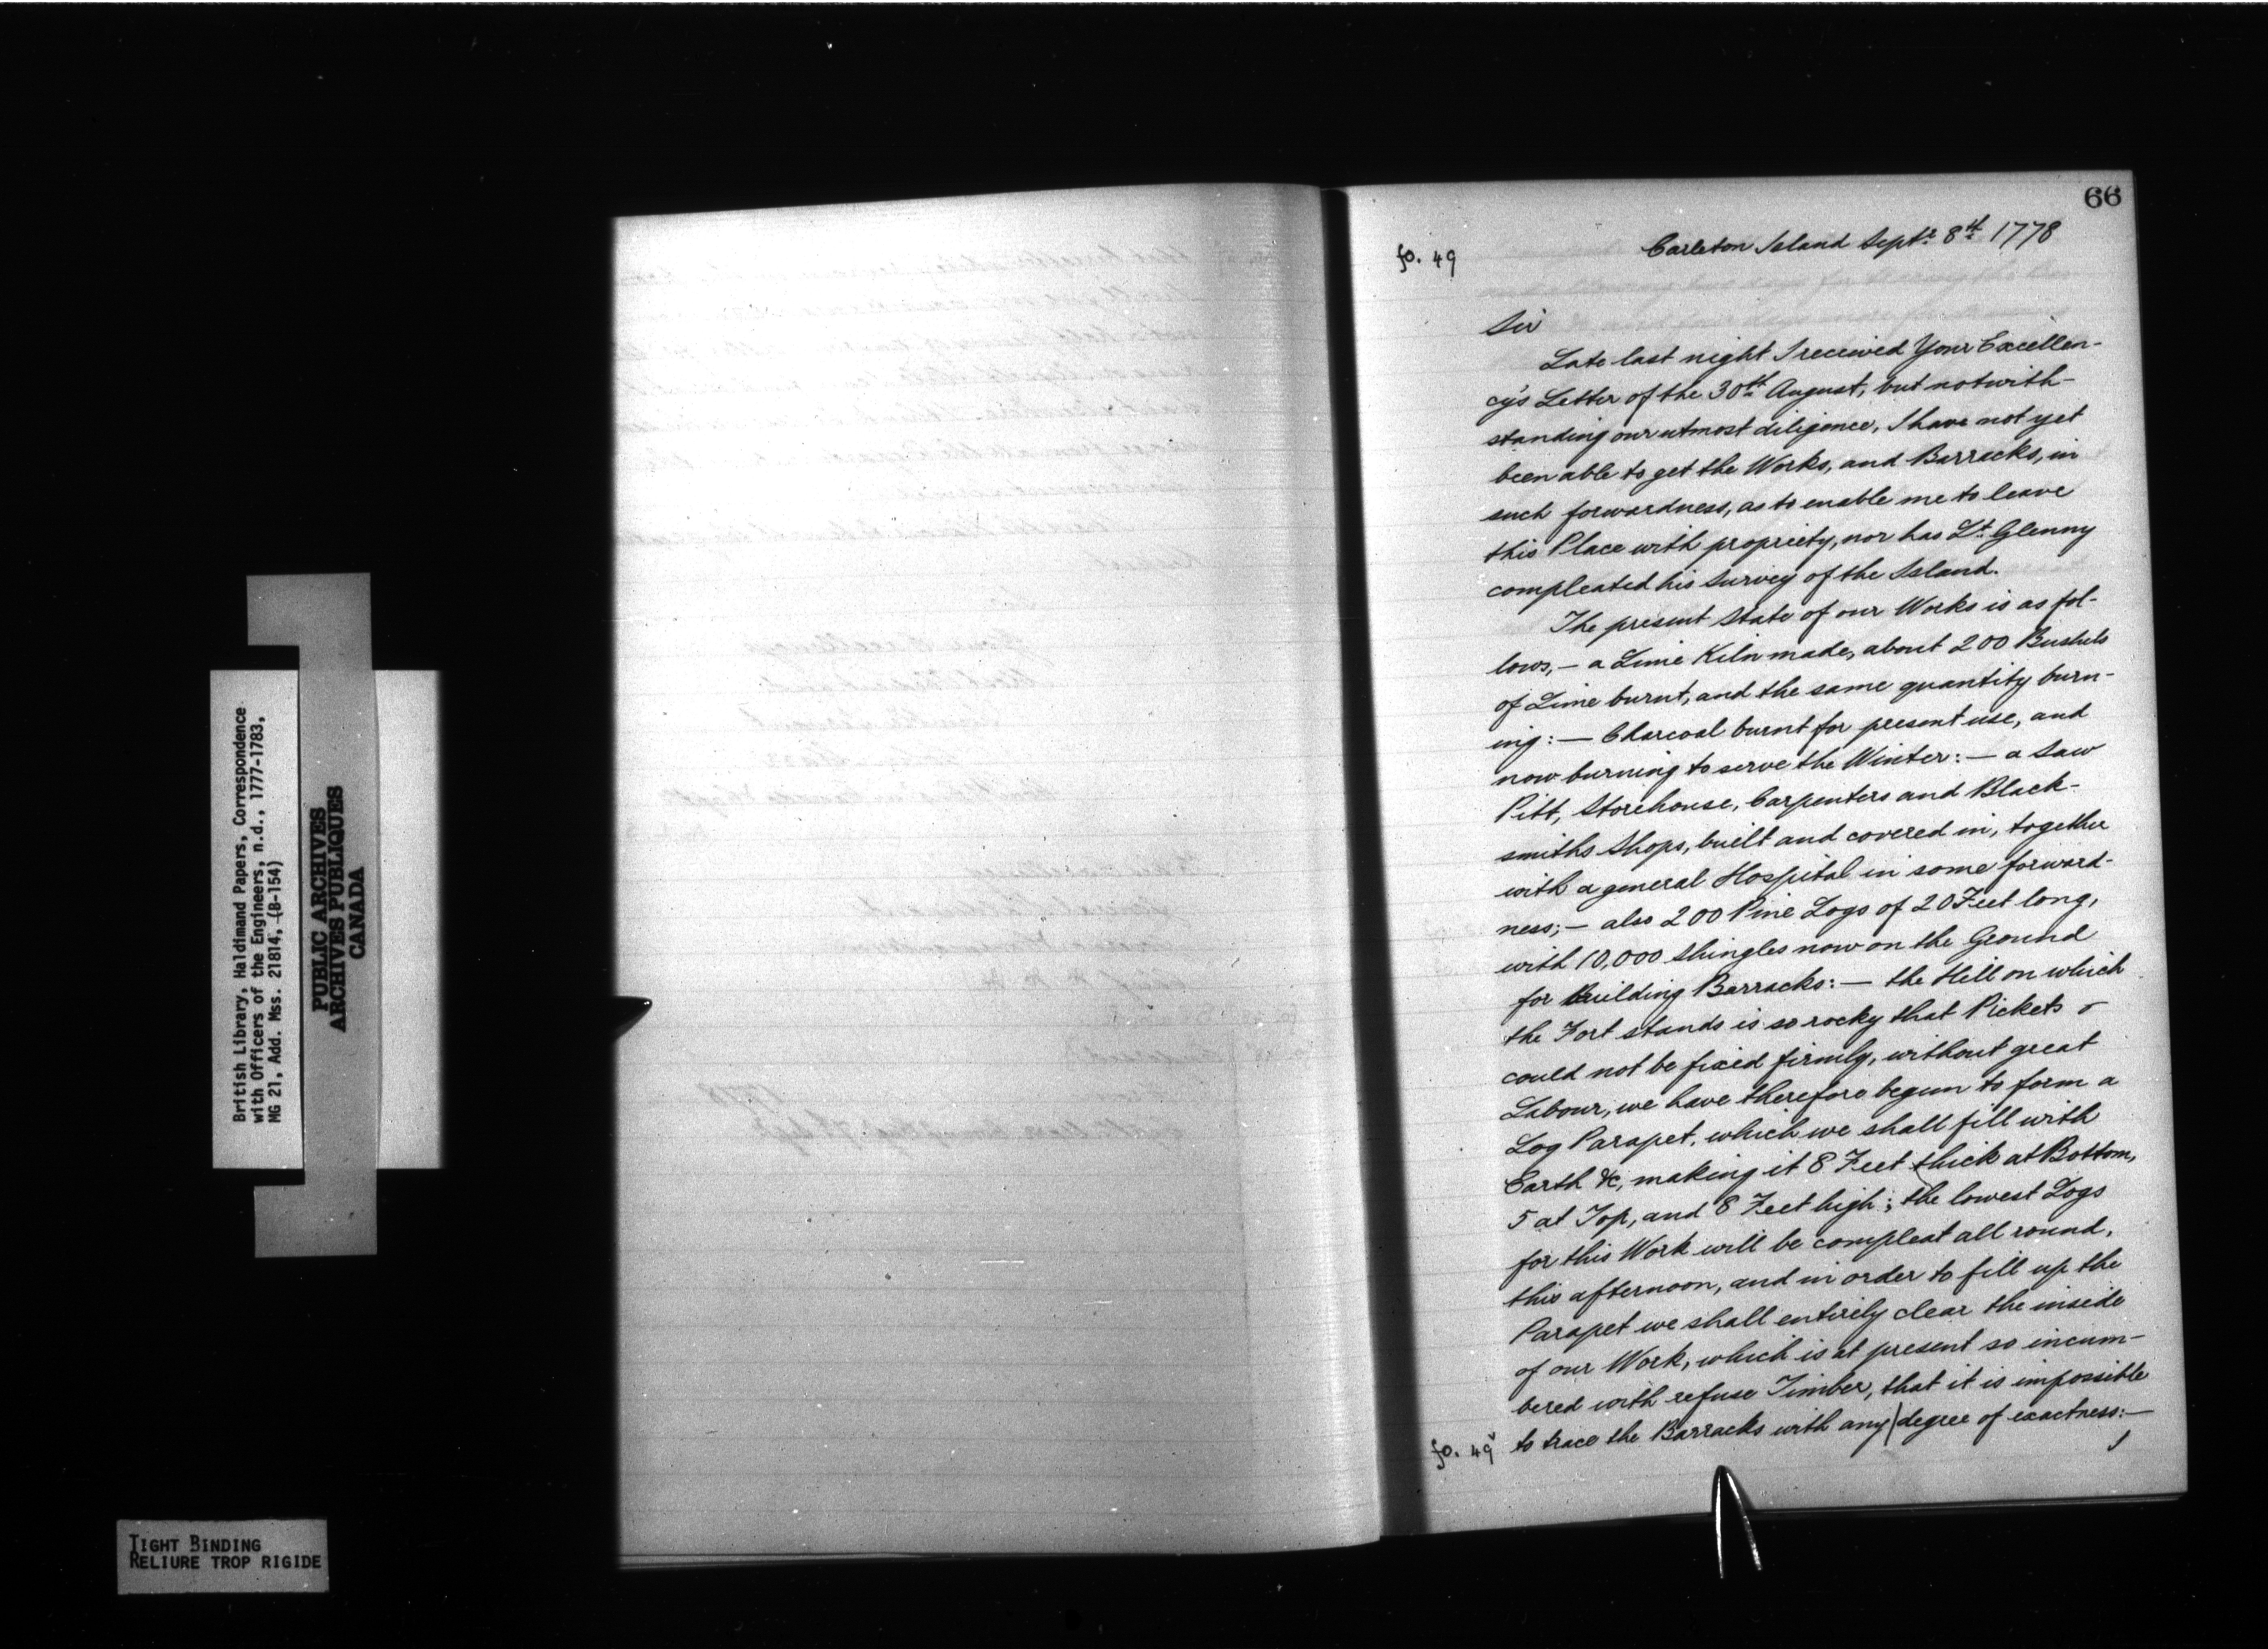 66
fo. 49
Carleton Island Septr. 8th. 1778
Sir
Late last night I received Your Excellen-
cy's Letter of the 30th. August, but notwith-
standing our utmost diligence, I have not yet
been able to get the Works, and Barracks, in
such forwardness, as to enable me to leave
this Place with propriety, nor has Lt. Glenny
compleated his Survey of the Island.
The present State of our Works is as fol-
lows, — a Lime Kiln made, about 200 Bushels
of Lime burnt, and the same quantity burn-
ing: — Charcoal burnt for present use, and
now burning to serve the Winter: — a Saw
Pitt, Storehouse, Carpenters and Black-
smiths Shops, built and covered in, together
with a general Hospital in some forward-
ness; — also 200 Pine Logs of 20 Feet long,
with 10,000 Shingles now on the Ground
for Building Barracks: — the Hill on which
the Fort stands is so rocky that Pickets
could not be fixed firmly, without great
Labour, we have therefore begun to form a
Log Parapet, which we shall fill with
Earth &c, making it 8 Feet thick at Bottom,
5 at Top, and 8 Feet high; the lowest Logs
for this Work will be compleat all round,
this afternoon, and in order to fill up the
Parapet we shall entirely clear the inside
of our Work, which is at present so incum-
bered with refuse Timber, that it is impossible
fo. 49v to trace the Barracks with any | degree of exactness: —
British Library, Haldimand Papers, Correspondence
with Officers of the Engineers, n.d., 1777-1783,
MG 21, Add. Mss. 21814, (B-154)
PUBLIC ARCHIVES
ARCHIVES PUBLIQUES
CANADA
TIGHT BINDING
RELIURE TROP RIGIDE